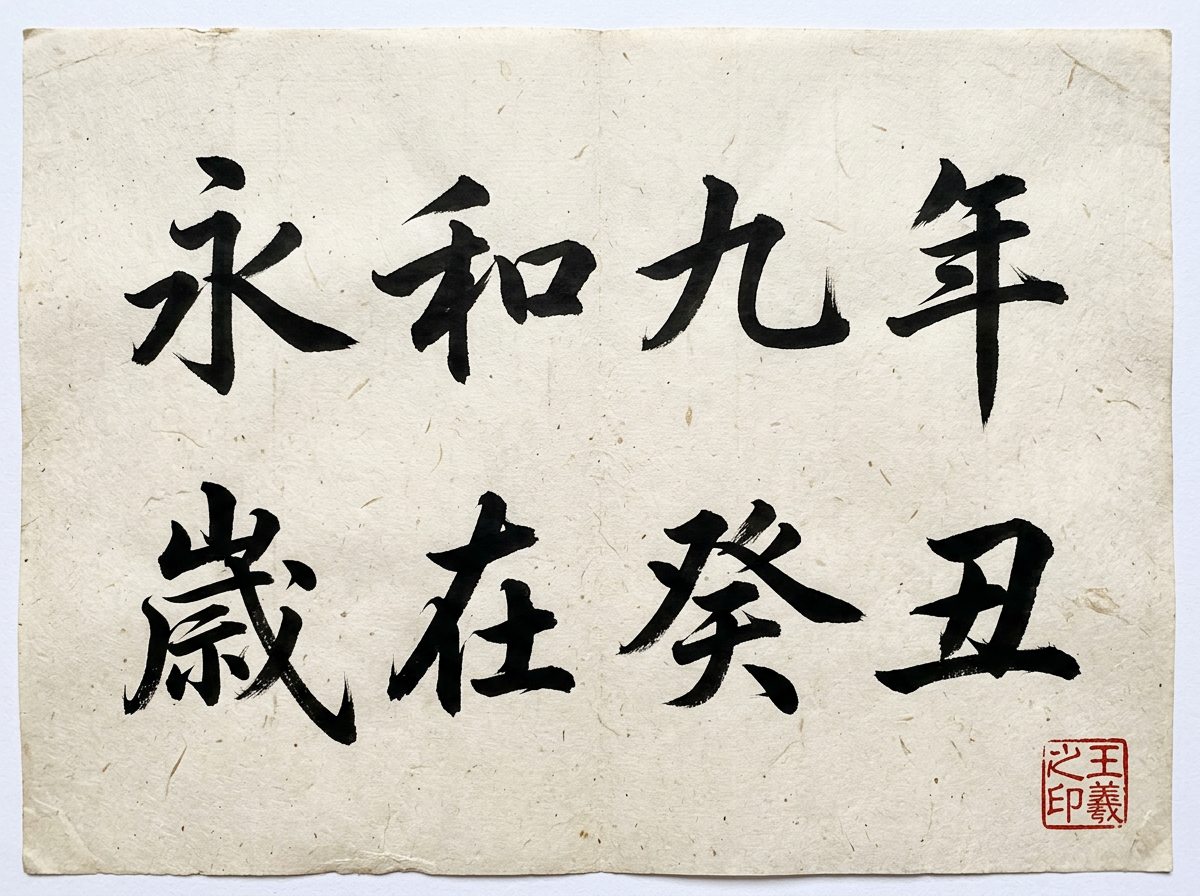 永和九年
歳在癸丑
王羲之印